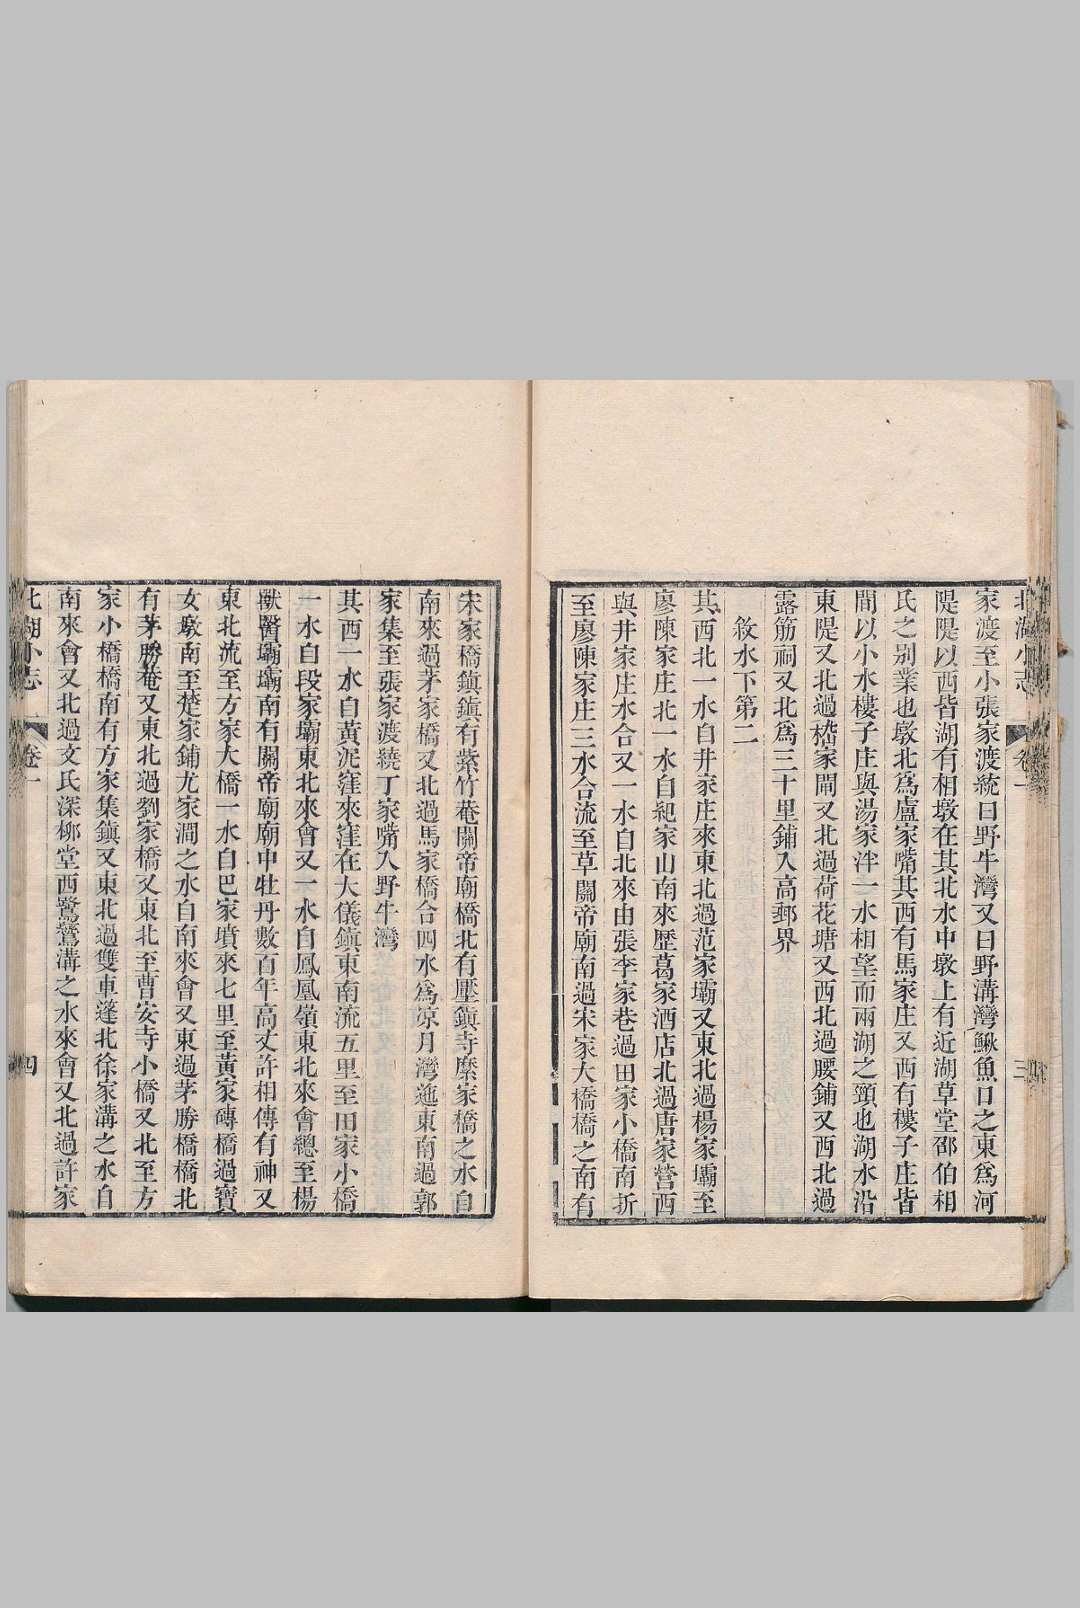 北湖小志 卷一 三
家渡至小張家渡統曰野牛灣又曰野溝灣鰍魚口之東爲河
隄隄以西皆湖有相墩在其北水中墩上有近湖草堂邵伯相
氏之別業也墩北爲盧家嘴其西有馬家庄又西有樓子庄皆
間以小水樓子庄與湯家泮一水相望而兩湖之頸也湖水沿
東隄又北過楷家閘又北過荷花塘又西北過腰鋪又西北過
露筋祠又北爲三十里鋪入高郵界
敘水下第二
其西北一水自井家庄來東北過范家壩又東北過楊家壩至
廖陳家庄北一水自紀家山南來歷葛家酒店北過唐家營西
與井家庄水合又一水自北來由張李家巷過田家小橋南折
至廖陳家庄三水合流至草關帝廟南過宋家大橋橋之南有
宋家橋鎮鎮有紫竹菴關帝廟橋北有壓鎮寺縻家橋之水自
南來過茅家橋又北過馬家橋合四水爲凉月灣迤東南過郭
家集至張家渡繞丁家嘴入野牛灣
其西一水自黃泥窪來窪在大儀鎮東南流五里至田家小橋
一水自段家壩東北來會又一水自鳳凰嶺東北來會總至楊
獸醫壩壩南有關帝廟廟中牡丹數百年高丈許相傳有神又
東北流至方家大橋一水自巴家墳來七里至黃家磚橋過寶
女墩南至楚家鋪尤家澗之水自南來會又東過茅勝橋橋北
有茅勝菴又東北過劉家橋又東北至曹安寺小橋又北至方
家小橋橋南有方家集鎮又東北過雙車蓬北徐家溝之水自
南來會又北過文氏深柳堂西鷺鷥溝之水來會又北過許家
北湖小志 卷一 四